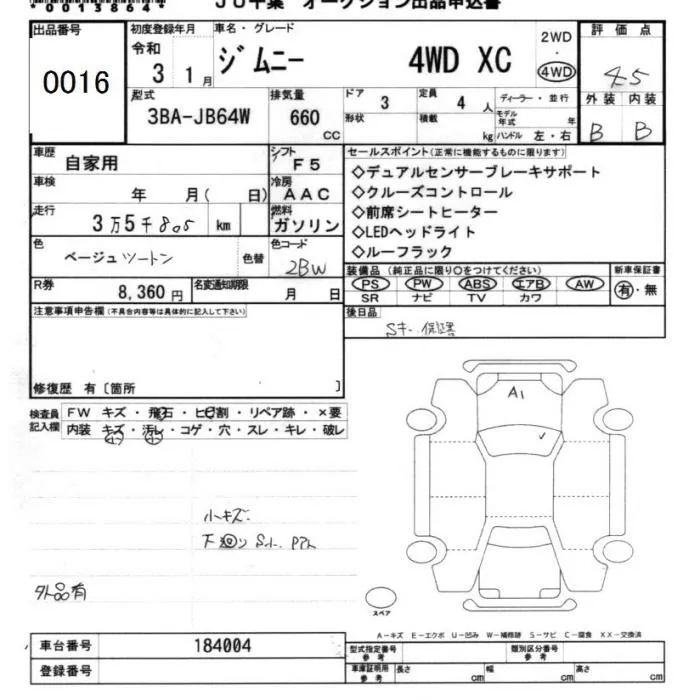 *00138648*
JU千葉 オークション出品申込書
出品番号
0016
初度登録年月
令和
3 1月
車名・グレード
ジムニー 4WD XC
2WD
・
4WD
評価点
4.5
外装 内装
B B
型式
3BA-JB64W
排気量
660
CC
ドア
3
定員
4 人
形状
積載
kg
ディーラー・並行
モデル年式 年
ハンドル 左・右
車歴
自家用
シフト
F5
車検
年 月( 日)
冷房
AAC
走行
3万5千805 km
燃料
ガソリン
色
ベージュツートン
色替
色コード
2BW
R券
8,360円
名変通知期限
月 日
セールスポイント(正常に機能するものに限ります)
◇デュアルセンサーブレーキサポート
◇クルーズコントロール
◇前席シートヒーター
◇LEDヘッドライト
◇ルーフラック
装備品(純正品に限り○をつけてください)
PS PW ABS エアB AW
SR ナビ TV カワ
新車保証書
有・無
後日品
Sキー 保証書
注意事項申告欄(不具合内容等は具体的に記入して下さい)
修復歴 有〔箇所 〕
検査員記入欄
FW キズ・飛石・ヒビ割・リペア跡・×要
内装 キズ・汚レ・コゲ・穴・スレ・キレ・破レ
小キズ
下廻り Sサビ
外品有
A1
スペア
A-キズ E-エクボ U-凹み W-補修跡 S-サビ C-腐食 XX-交換済
車台番号 184004
登録番号
型式指定番号
参考
類別区分番号
参考
車庫証明用
参考
長さ cm 幅 cm 高さ cm